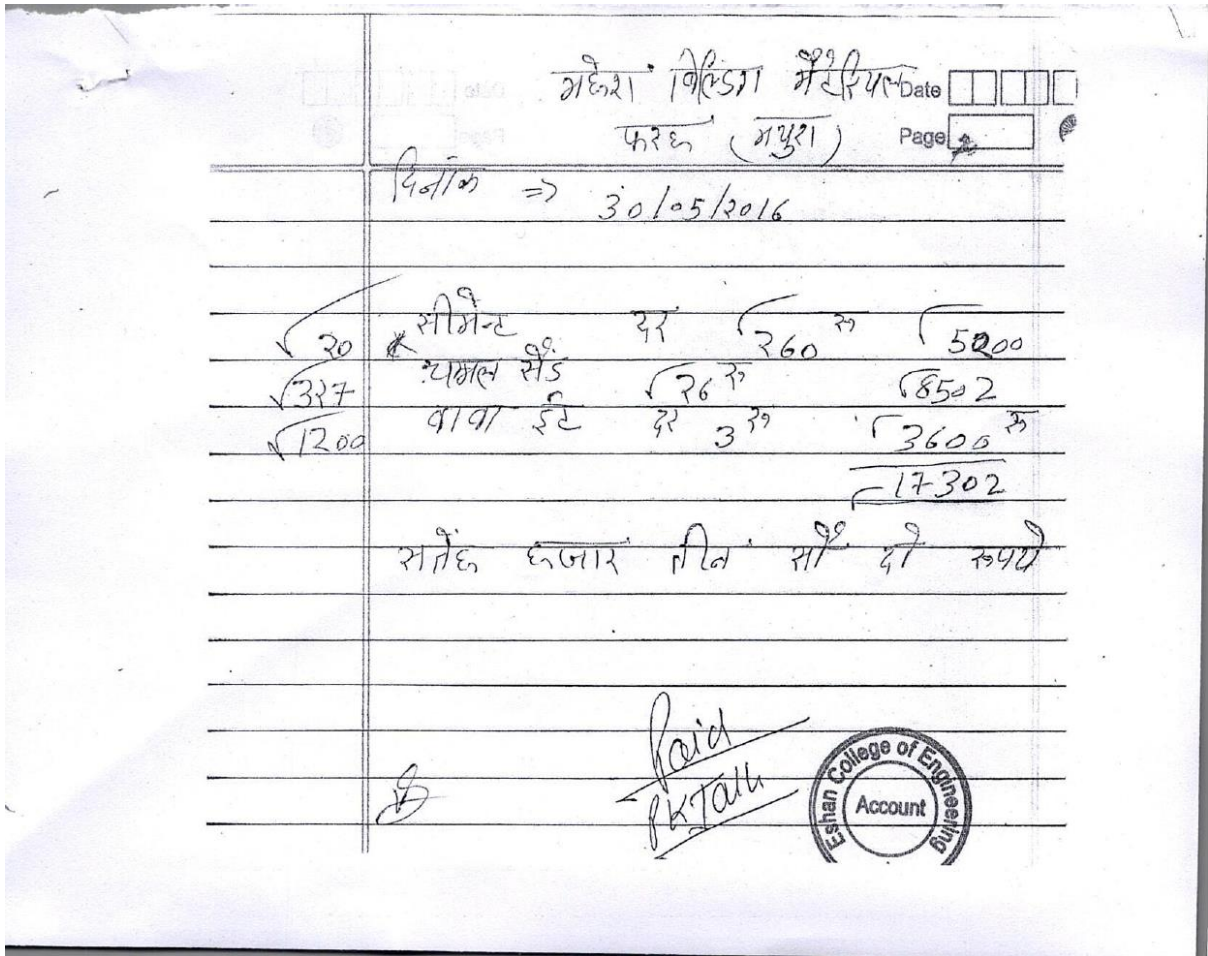 महेश बिल्डिंग मैटेरियल Date
फरह (मथुरा) Page
दिनांक => 30/05/2016
20 सीमेन्ट दर 260 रु 5200
327 चम्बल सैंड 26 रु 8502
1200 बाबा ईंट दर 3 रु 3600 रु
17302
सतेह हजार तीन सौ दो रूपये
Paid
Eshan College of Engineering
Account